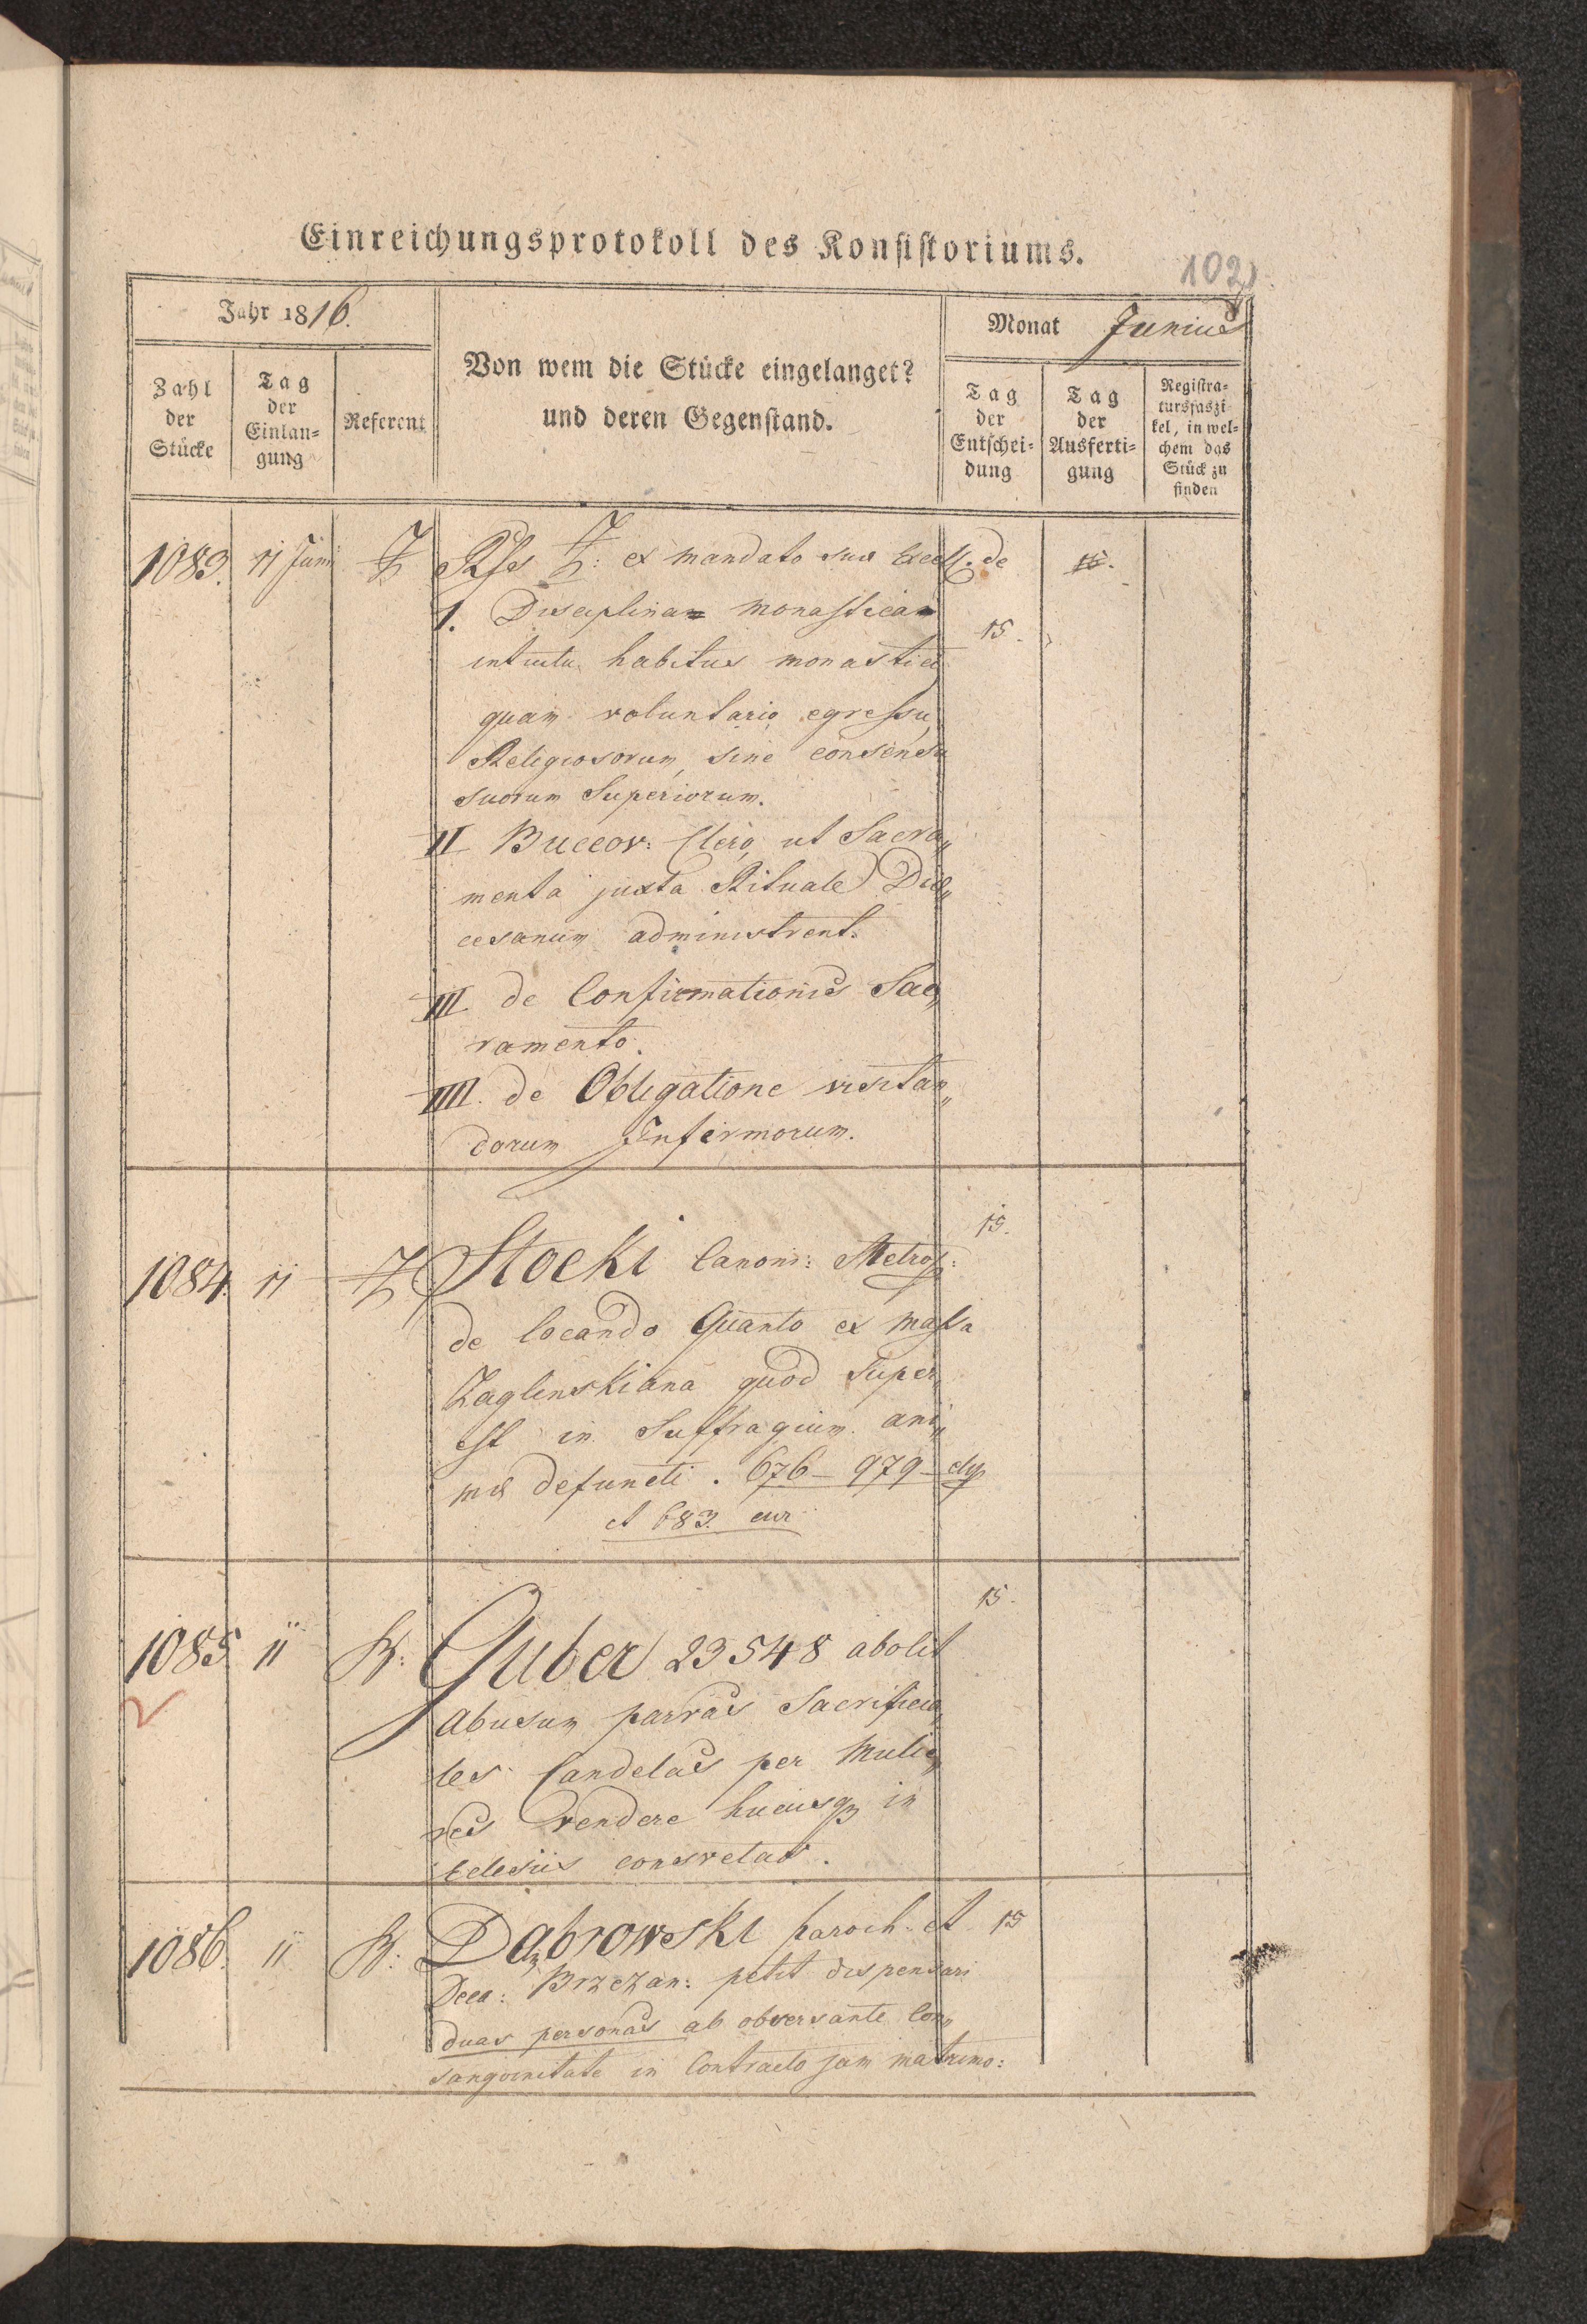 Einreichungsprotokoll des Konsistoriums.
102
Jahr 1816.
Von wem die Stücke eingelanget?
und deren Gegenstand.
Monat Junius
Zahl
der
Stücke
Tag
der
Einlan=
gung
Referent
Tag
der
Entschei=
dung
Tag
der
Ausferti=
gung
Registra=
tursfaszi
kel, in wel=
chem das
Stück zu
finden
1083. 11 Juni Z Z: ex mandato suæ Excell. de
1. Disciplinam Monasticam 15.
intuitu habitus monastici
quam voluntario egressu
Religiosorum, sine consensu
suorum Superiorum.
II Buccov: Clero, ut Sacra„
menta juxta Rituale Diæ„
cesanum administrent.
III de Confirmationis Sac„
ramento.
IIII. de Obligatione visitan„
dorum Infirmorum.
1084. 11 Z Stocki Canoni: Metrop: 15.
de locando Quanto ex massa
Zaglinskiana quod super„
est in Suffragium ani„
mæ defuncti. 676 – 979 –
et 683. cur
1085. 11 K: Guber 23548 abolet 15.
abusum parvas Sacrificia„
les Candelas per Mulie„
res vendere hucusq in
Eclesiis consvetas.
1086. 11 K: Dąbrowski paroch. et 15
Deca: Brzezan: petit dispensari
duas personas ab obversante Con„
sangvinitate in Contracto jam matrimo: